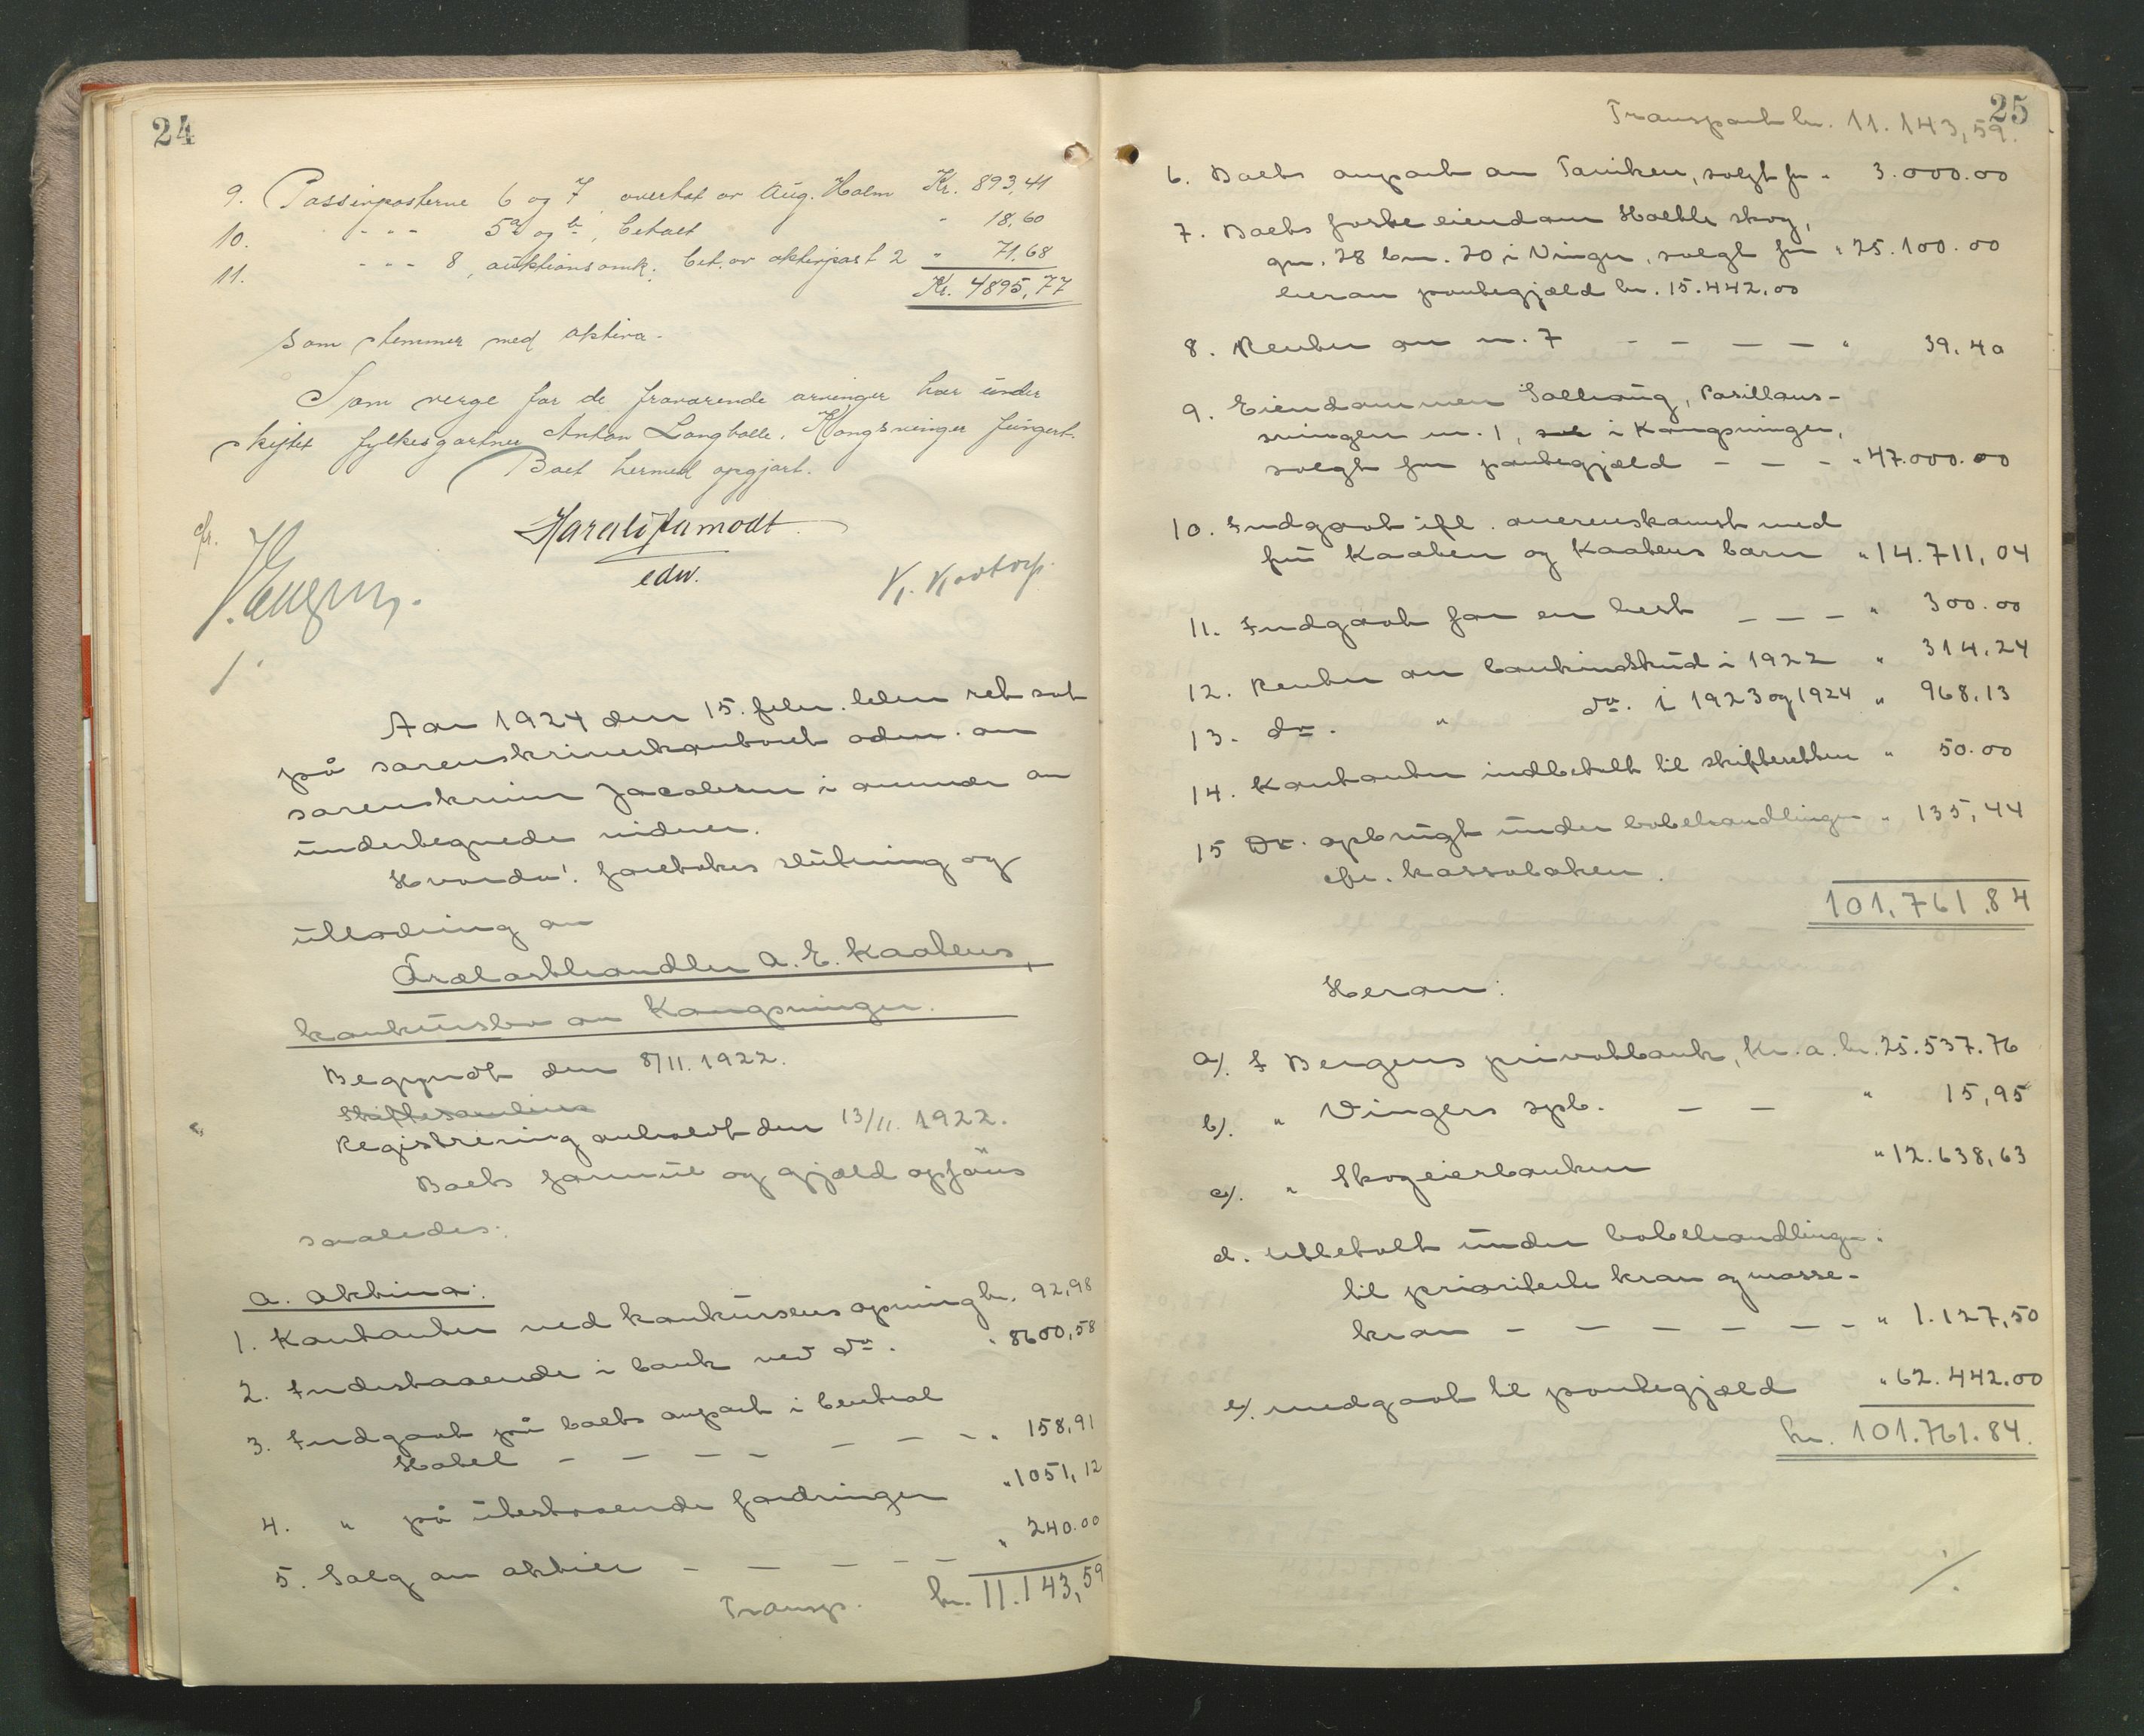 24
9. Passivposterne 6 og 7, overtat av Aug. Holm Kr. 893,41
10. - - - 5a og b, betalt " 18,60
11. - - - 8, auktionsomk. bet. av aktivpost 2 " 71,68
Kr. 4895,77
som stemmer med aktiva.
Som verge for de fraværende arvinger har under
skiftet fylkesgartner Anton Langballe, Kongsvinger fungert.
Boet hermed opgjort.
Harald Aamodt
edv.
K. Kvotorp.
Aar 1924 den 15. febr. blev ret sat
på sorenskriverkontoret adm. av
sorenskriver Jacobsen i overvær av
undertegnede vidner.
Hvorda: foretokes slutning og
utlodning av
Trælasthandler A. E. Kaabers,
konkursbo av Kongsvinger.
Begyndt den 8/11. 1922.
Skiftesamling
Registrering avholdt den 13/11. 1922.
Boets formue og gjæld opføres
saaledes:
a. Aktiva:
1. Kontanter ved konkursens åpning kr. 92,98
2. Indestaaende i bank ved do. " 8600,58
3. Indgaat på boets anpart i Central
Hotel - - - - - - - " 158,91
4. " på utestaaende fordringer " 1051,12
5. Salg av aktier - - - - - " 240.00
Transp. kr. 11.143,59
25
Transport kr. 11.143,59.
6. Boets anpart av Taniken, solgt for " 3.000.00
7. Boets faste eiendom Holtbr skog,
gr. 28 br. 20 i Vinger, solgt for " 25.100.00
herav pantegjæld kr. 15.442,00
8. Renter av nr. 7 - - - - " 39,40
9. Eiendommen Solhaug, Parillaus-
svingen nr. 1, i Kongsvinger,
solgt for pantegjæld - - - " 47.000.00
10. Indgaat ifl. overenskomst med
fru Kaaber og Kaabers barn " 14.711,04
11. Indgaat for en hest - - - " 300.00
12. Renter av bankindskud i 1922 " 314,24
13. do. " do. i 1923 og 1924 " 968,13
14. Kontanter indbetalt til skifteretten " 50.00
15 Do. opbrugt under bobehandlingen " 135,44
cfr. kassaboken.
101.761.84
Herav:
a/. I Bergens privatbank, Kr.a. kr. 25.537.76
b/. " Vingers spb. - - " 15,95
c/. " Skogeierbanken " 12.638,63
d. Utbetalt under bobehandlingen
til prioriterte krav og masse-
krav - - - - - - " 1.127,50
e/. medgaat til pantegjæld " 62.442.00
kr. 101.761.84.